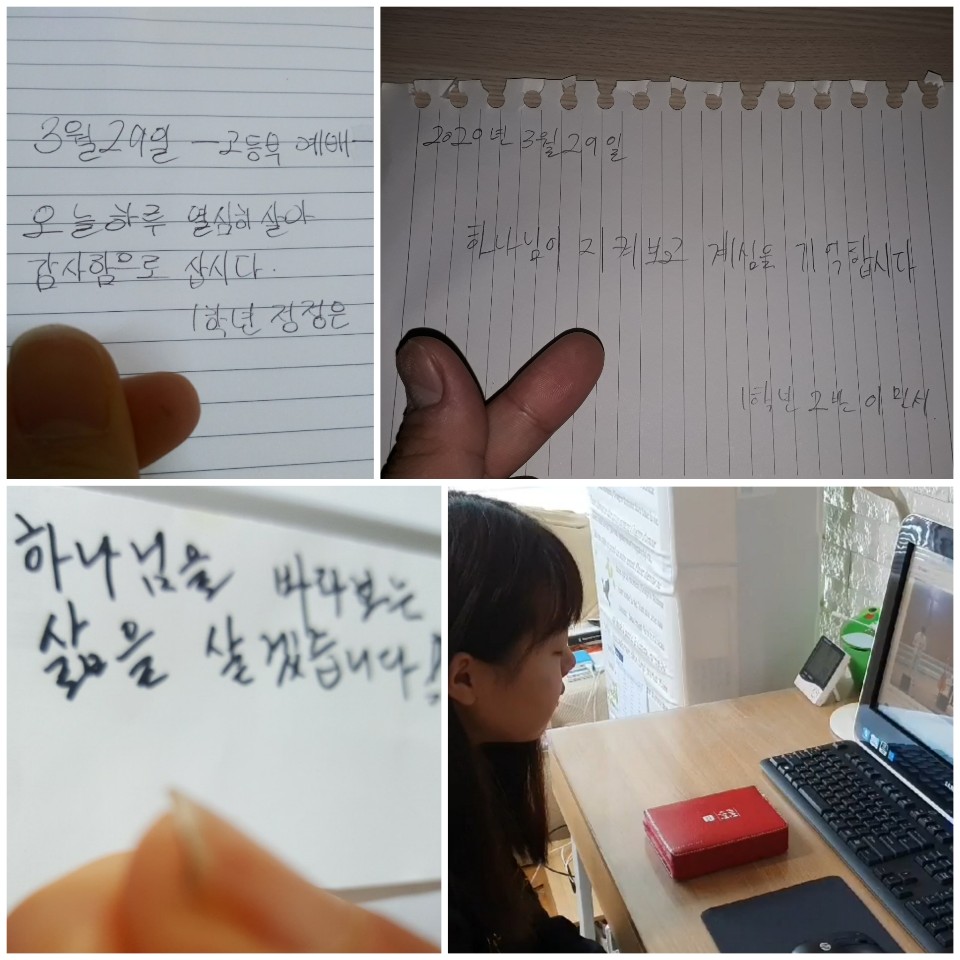 3월 29일 -고등부 예배-
오늘하루 열심히 살아
감사함으로 삽시다.
1학년 정정은
2020년 3월 29일
하나님이 지켜보고 계심을 기억합시다
1학년 2반 이민서
하나님을 바라보는
삶을 살겠습니다!